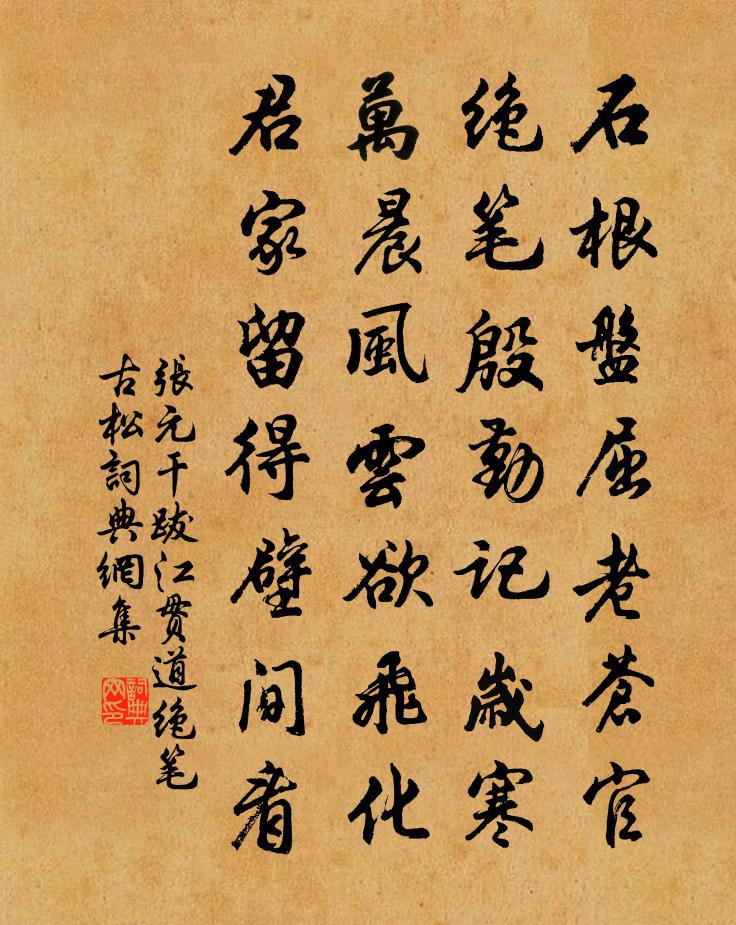 石根盤屈老蒼官
绝笔殷勤記歲寒
萬晨風雲欲飛化
君家留得壁間看
張元干跋江貫道绝笔
古松詞典網集
詞典
网印